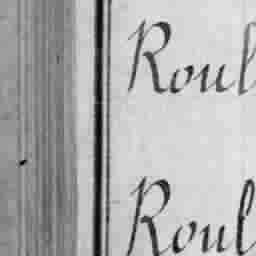 Roul
Roul